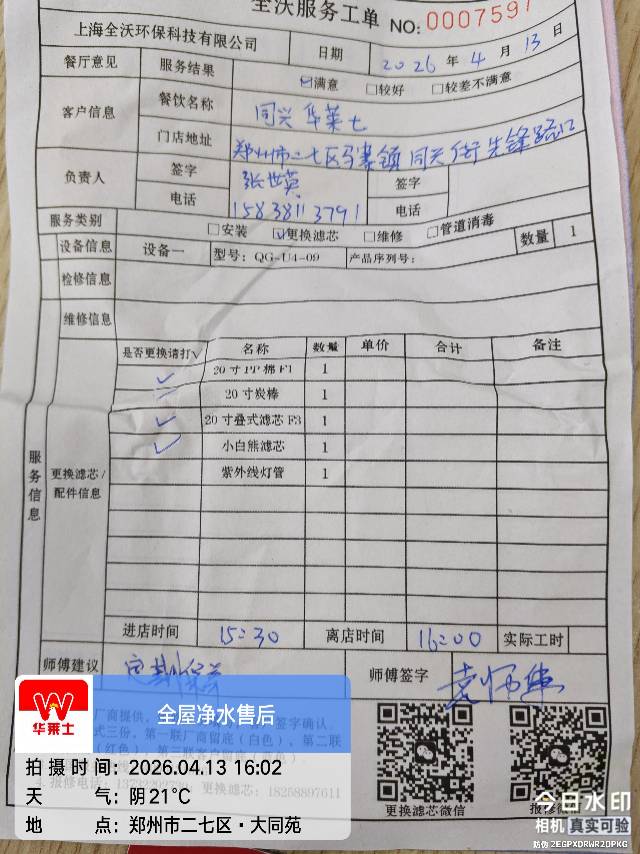 全沃服务工单 NO:0007597
上海全沃环保科技有限公司 日期 2026年4月13日
餐厅意见 服务结果 ☑满意 □较好 □较差不满意
客户信息 餐饮名称 同兴华莱士
门店地址 郑州市二七区马寨镇同兴街先锋路口
负责人 签字 张世英 签字
电话 15838113791 电话
服务类别 □安装 ☑更换滤芯 □维修 □管道消毒
设备信息 设备一 型号:QG-U4-09 产品序列号: 数量 1
检修信息
维修信息
服务信息 更换滤芯/配件信息
是否更换请打√ 名称 数量 单价 合计 备注
✓ 20寸PP棉F1 1
20寸炭棒 1
✓ 20寸叠式滤芯F3 1
✓ 小白熊滤芯 1
紫外线灯管 1
进店时间 15:30 离店时间 16:00 实际工时
师傅建议 定期保养 师傅签字
厂商提供, 签字确认
式三份,第一联厂商留底(白色)、第二联
(红色)、第三联客户留底
4. 报修电话: 更换滤芯:18258897611
更换滤芯微信 报修微信
华莱士
全屋净水售后
拍摄时间:2026.04.13 16:02
天 气:阴21℃
地 点:郑州市二七区·大同苑
今日水印
相机 真实可验
防伪 2EGPXDRWR2DPKG